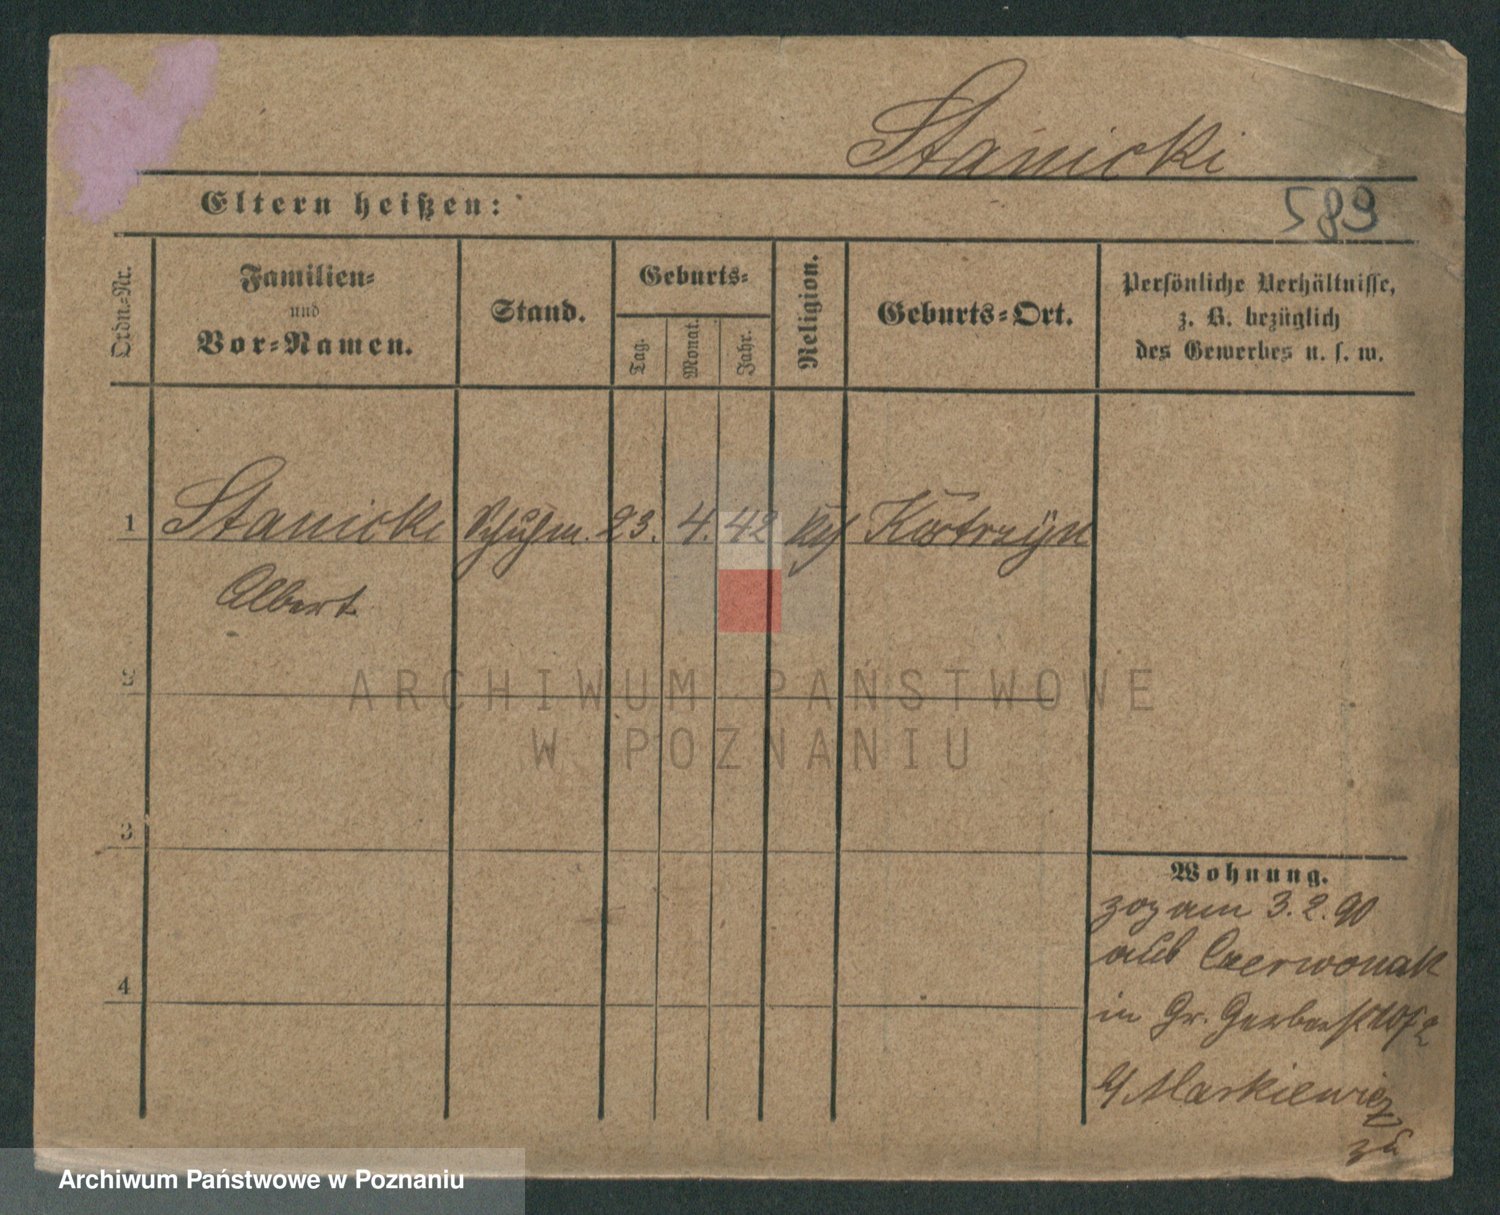 Stanicki
Eltern heißen:
589
Ordn.-Nr.
Familien-
und
Vor-Namen.
Stand.
Geburts-
Tag.
Monat.
Jahr.
Religion.
Geburts-Ort.
Persönliche Verhältnisse,
z. B. bezüglich
des Gewerbes u. s. w.
1 Stanicki Schuhm. 23. 4. 42 Kth Kostrzyn
Albert
2
3
4
Wohnung.
zog am 3.2.90
aus Czerwonak
in Gr. Gerberst
b/ Markiewicz
ARCHIWUM PAŃSTWOWE
W POZNANIU
Archiwum Państwowe w Poznaniu